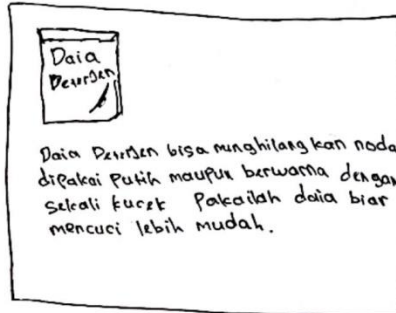 Daia
Deterjen
Daia Deterjen bisa menghilangkan noda
dipakai putih maupun berwarna dengan
sekali kucek Pakailah daia biar
mencuci lebih mudah.